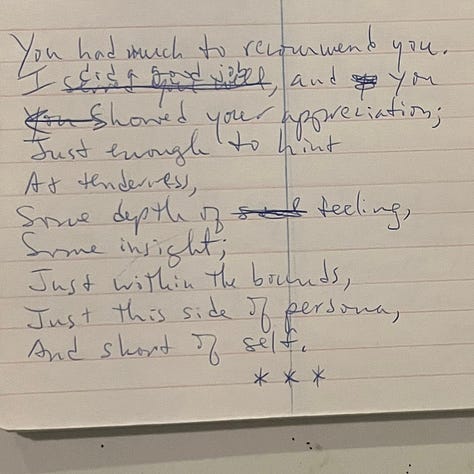 You had much to recommend you.
I did a good job, and you
Showed your appreciation;
Just enough to hint
At tenderness,
Some depth of feeling,
Some insight;
Just within the bounds,
Just this side of persona,
And short of self.
* * *